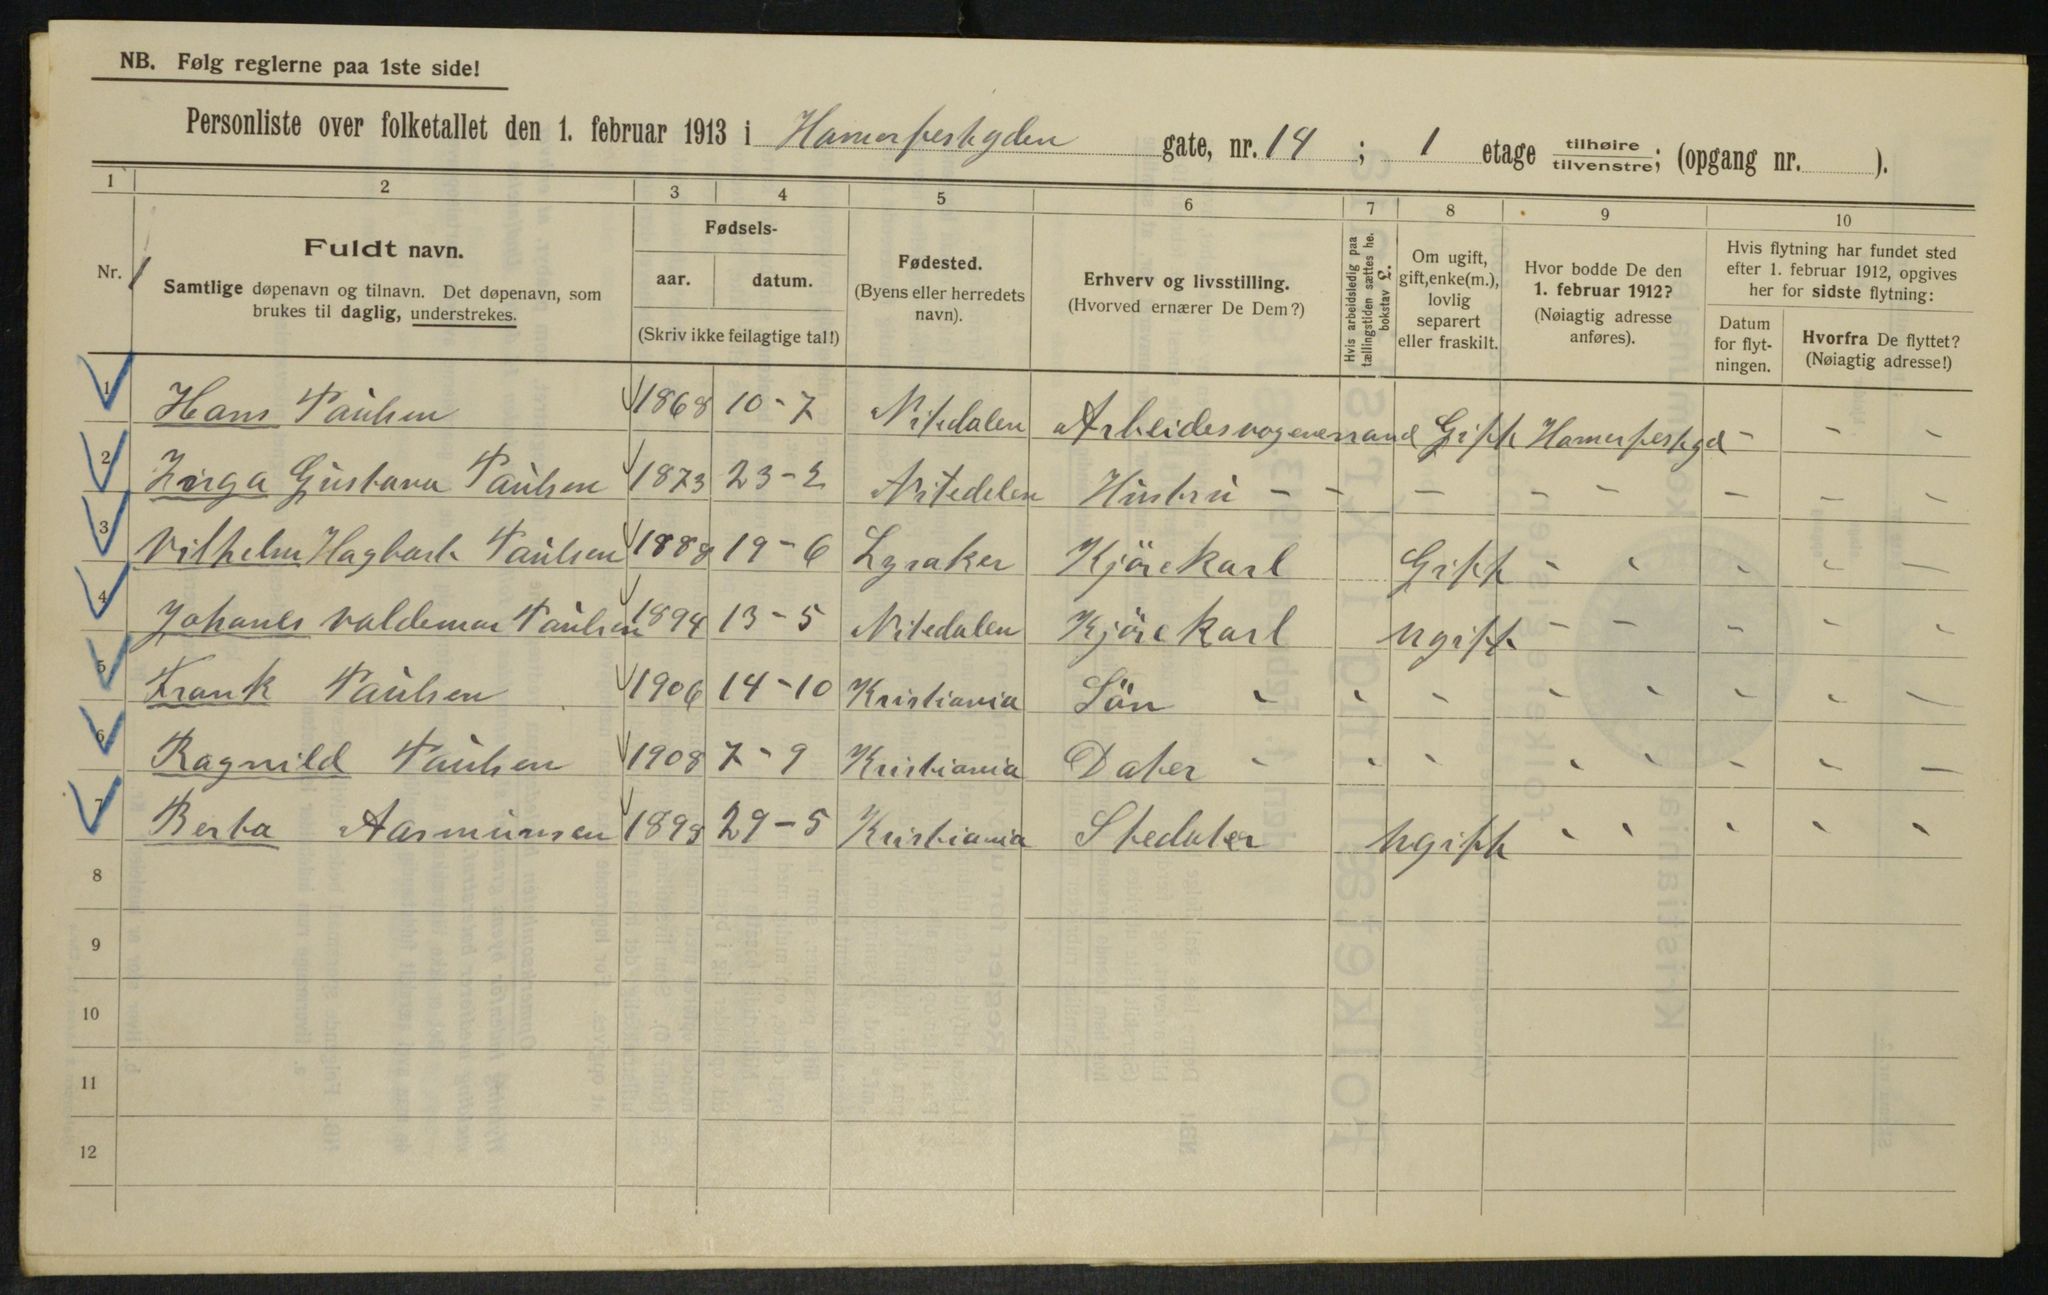 NB. Følg reglerne paa 1ste side!
Personliste over folketallet den 1. februar 1913 i Hamerfestgden gate, nr. 14 ; 1 etage tilhøire tilvenstre; (opgang nr. ).
1 2 3 4 5 6 7 8 9 10
Nr. 1
Fuldt navn.
Samtlige døpenavn og tilnavn. Det døpenavn, som
brukes til daglig, understrekes.
Fødsels-
aar. datum.
(Skriv ikke feilagtige tal!)
Fødested.
(Byens eller herredets
navn).
Erhverv og livsstilling.
(Hvorved ernærer De Dem?)
Hvis arbeidsledig paa
tællingstiden sættes he.
bokstav L.
Om ugift,
gift, enke(m.),
lovlig
separert
eller fraskilt.
Hvor bodde De den
1. februar 1912?
(Nøiagtig adresse
anføres).
Hvis flytning har fundet sted
efter 1. februar 1912, opgives
her for sidste flytning:
Datum
for flyt-
ningen.
Hvorfra De flyttet?
(Nøiagtig adresse!)
1 Hans Paulsen 1868 10-7 Nitedalen Arbeidsvogenmand Gift Hamerfestgd - - -
2 Gustava Paulsen 1873 23-2 Nitedelen Hustru - - - - - - - -
3 Vilhelm Hagbart Paulsen 1888 19-6 Lysaker Kjörekarl Gift - - - - -
4 Johanes Valdemar Paulsen 1894 13-5 Nitedalen Kjörekarl Ugift - - - - -
5 Frank Paulsen 1906 14-10 Kristiania Sön - - - - - - - -
6 Ragnild Paulsen 1908 7-9 Kristiania Dater - - - - - - - -
7 Berta Aasmunsen 1898 29-5 Kristiania Stedater Ugift - - - - -
8
9
10
11
12